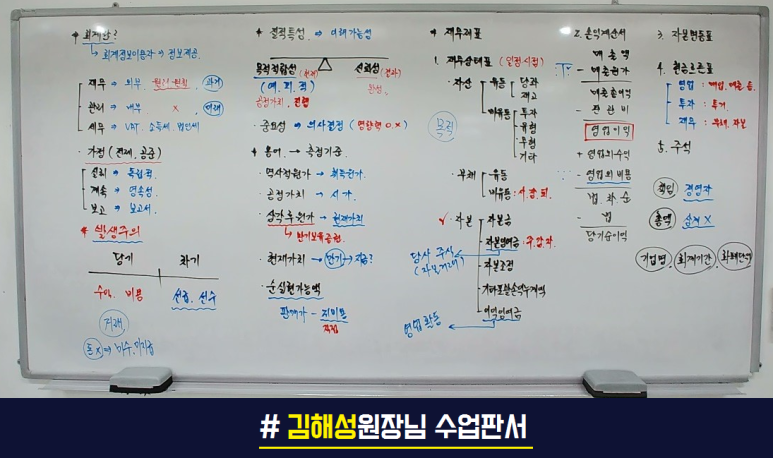 * 회계란?
→ 회계정보이용자 → 정보제공.
재무 ⇒ 외부. 과거
관리 ⇒ 내부 x 미래
세무 ⇒ VAT. 소득세 법인세
· 가정 (전제, 공준)
실체 ⇒ 독립적
계속 ⇒ 영속성.
보고 → 보고서.
* 발생주의
당기 차기
수익. 비용 선급. 선수
거래
* 질적특성 ⇒ 이해가능성
목적적합성 신뢰성
(예. 피. 적)
· 중요성 ⇒ 의사결정 (영향력 O.X)
* 용어 → 측정기준.
· 역사적원가 → 취득원가.
· 공정가치 → 시가.
· 상각후원가 → 현재가치
↳ 만기보유증권.
· 현재가치 →
· 순실현가능액
판매가 - 직비용
* 재무제표
1. 재무상태표 (일정시점)
· 자산
유동
당좌
재고
비유동
투자
유형
무형
기타
· 부채
유동
비유동 : 사. 장. 퇴.
· 자본
자본금
자본잉여금 : 주. 감. 자.
당사 주식
(자본거래)
자본조정
기타포괄손익누계액
이익잉여금
영업활동
2. 손익계산서
매출액
- 매출원가
매출총이익
- 판관비
영업이익
+ 영업외수익
- 영업외비용
법. 차. 순
- 법
당기순이익
3. 자본변동표
4. 현금흐름표
영업 : 매입, 매출 등.
투자 : 투기.
재무 : 부채. 자본
5. 주석
책임 경영자
총액 상계 X
기업명, 회계기간, 화폐단위
# 김해성원장님 수업판서